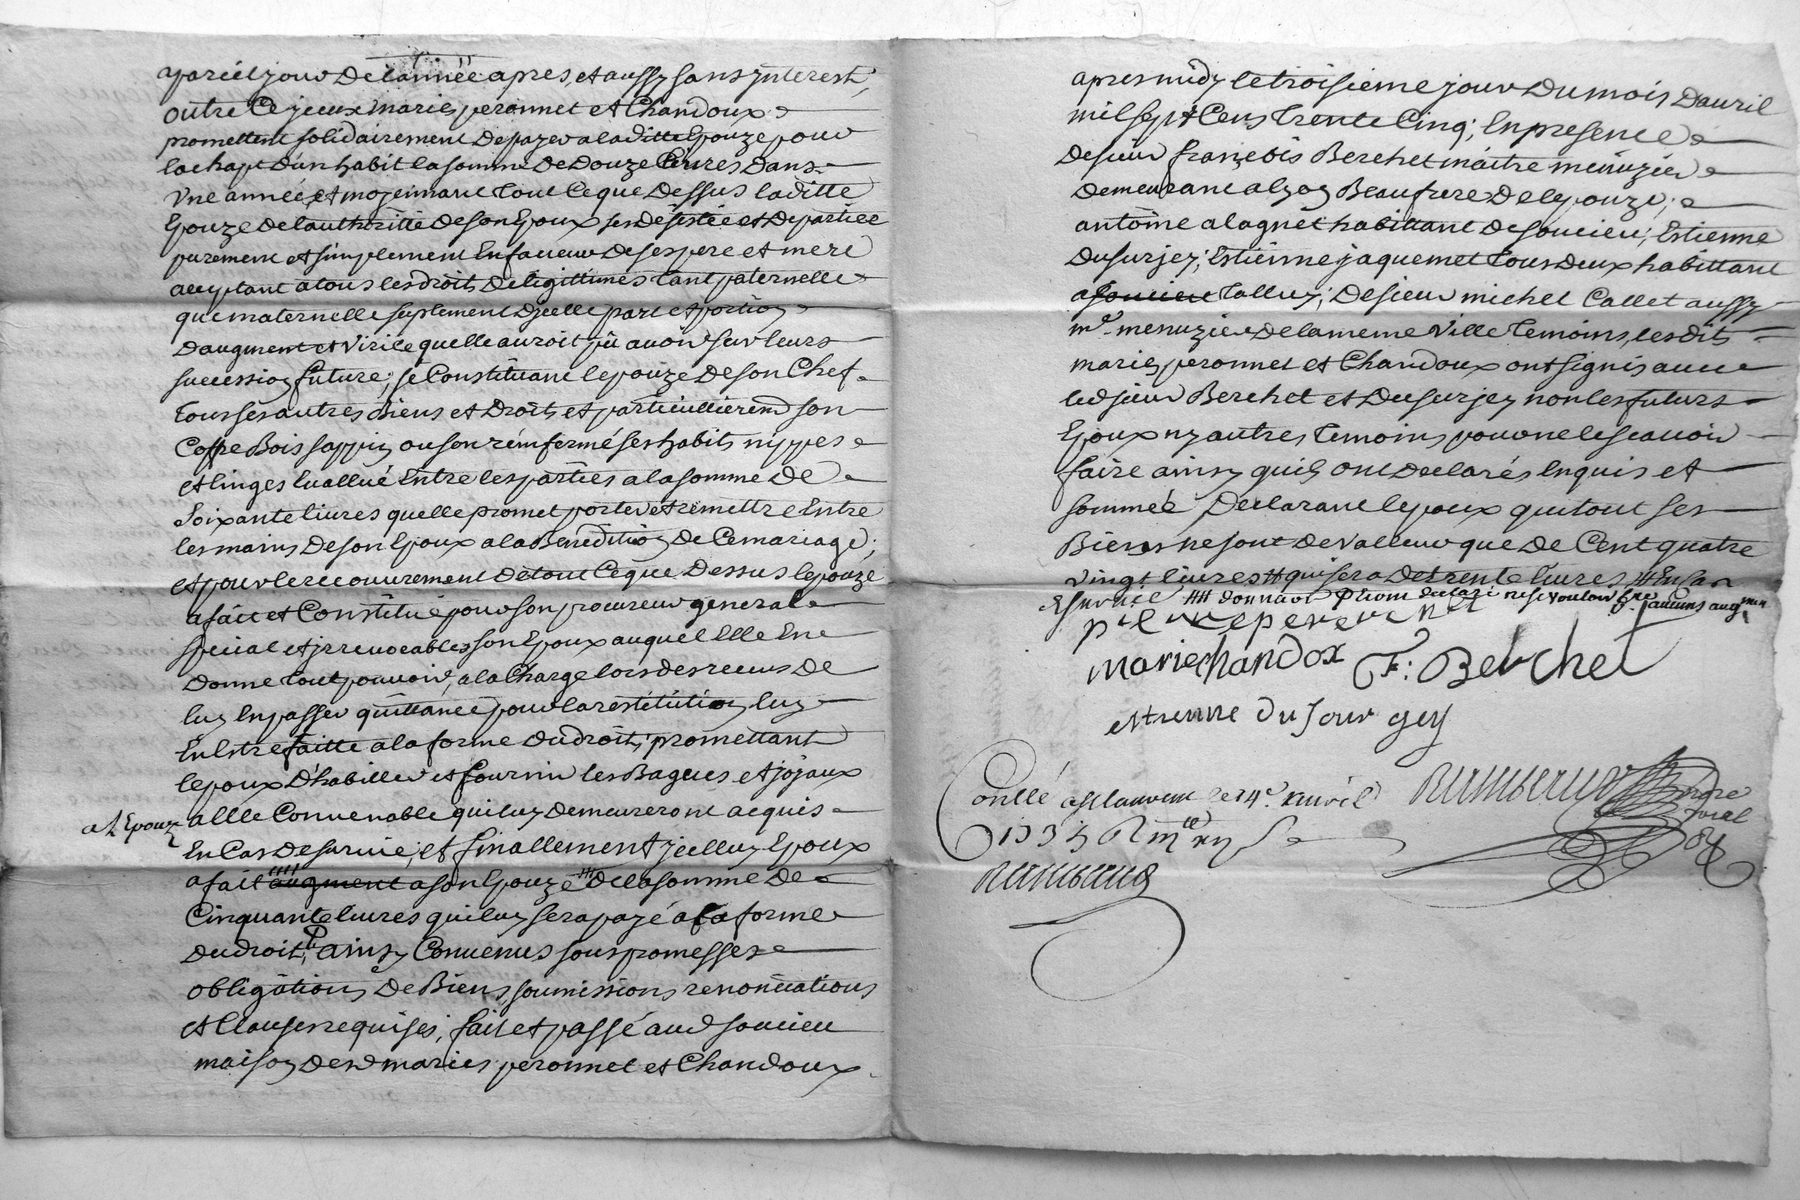 apareil jour de l'année apres, et aussy sans interest,
outre ce jceux maries peronnet et Chandoux
promettent solidairement de payer a laditte Epouze pour
lachapt d'un habit la somme de Douze Livres dans
Une année, et moyennant tout ce que Dessus laditte
Epouze de l'authorité de son Epoux ses desistée et departiée
purement et simplement En faueur de ses pere et mere
acceptant a tous les droits de legittimes tant paternelle
que maternelle suplement d'jcelle part et portion
d'augment et Virile quelle auroit pû auoir sur leurs
succession future; se Constituant lepouze de son Chef
tous ses autres Biens et Droits, et particullierem.t son
Coffre Bois sappin ou son renfermé ses habits nippes
et linges Euallué Entre les parties a la somme de
Soixante liures quelle promet porter et remettre Entre
les mains de son Epoux a la Benediction de Ce mariage;
et pour le recouurement de tout Ce que Dessus lepouze
a fait et Constitué pour son procureur general
special et jrreuocable son Epoux auquel Elle En
Donne tout pouuoir, a la Charge lors des receus de
luy En passer quittance pour la restitution luy
En Estre faitte a la forme du droit, promettant
lepoux D'habiller et fournir les Bagues et joyaux
a Elle Conuenable qui luy demeureront acquis
a L'Epouze
En Cas de suruie; et finallement jcelluy Epoux
a fait augment a son Epouze de la somme de
Cinquante liures qui luy sera payé a la forme
du droit, ainsy Conuenus sous promesses
obligations de Biens, soumissions renonciations
et Clauses requises, fait et passé aud soucieu
maison desd maries peronnet et Chandoux
apres midy le troisieme jour du mois D'auril
mil sept Cens Trente Cinq; En presence
de sieur françois Berchet maitre menuzier
demeurant a lyon Beaufrere de lepouze;
antoine alagnet habittant de soucieu, Estienne
Dusurjey, Estienne jaquemet tous deux habittant
a soucieu talluy; de sieur michel Callet aussy
m.e menuzier de la meme Ville temoins, lesdits
maries peronnet et Chandoux ont signés auec
led sieur Berchet et Dusurjey non les futurs
Epoux ny autres temoins pour ne le scauoir
faire ainsy quils ont declarés Enquis et
sommés Declarant lepoux que tout ses
Biens ne sont de valleur que de Cent quatre
vingt liures # qui sera de trente liures, # En cas
de suruie
mariechandox F: Berchet
etienne du Sour gey
Conllé a st laurent le 14e auril
1735
Rambaud
Rambaud